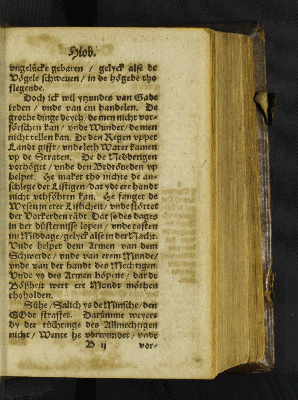 Hiob.
vngelücke gebaren / gelyck alse de
Vögele schweuen / in de högede tho
flegende.
Doch ick wil ytzundes van Gade
reden / vnde van em handelen. De
grothe dinge deyth / de men nicht vor-
förschen kan / vnde Wunder / de men
nicht tellen kan. De den Regen vppet
Landt gifft / vnde leth Water kamen
vp de Straten. De de Nedderigen
vorhöget / vnde den Bedröueden vp
helpet. He maket tho nichte de an-
schlege der Listigen / dat ydt ere handt
nicht vthföhren kan. He fanget de
Wysen in erer Listicheit / vnde störtet
der Vorkerden rädt. Dat se des dages
in der düsternisse lopen / vnde tasten
im Middage / gelyck alse in der Nacht.
Vnde helpet dem Armen van dem
Schwerde / vnde van erem Munde /
vnde van der handt des Mechtigen.
Vnde ys des Armen höpene / dat de
Bößheit wert ere Mundt möthen
thoholden.
Sühe / Salich ys de Minsche / den
GOdt straffet. Darümme weyere
dy der tüchtinge des Allmechtigen
nicht / Wente he vorwundet / vnde
B ij vor-